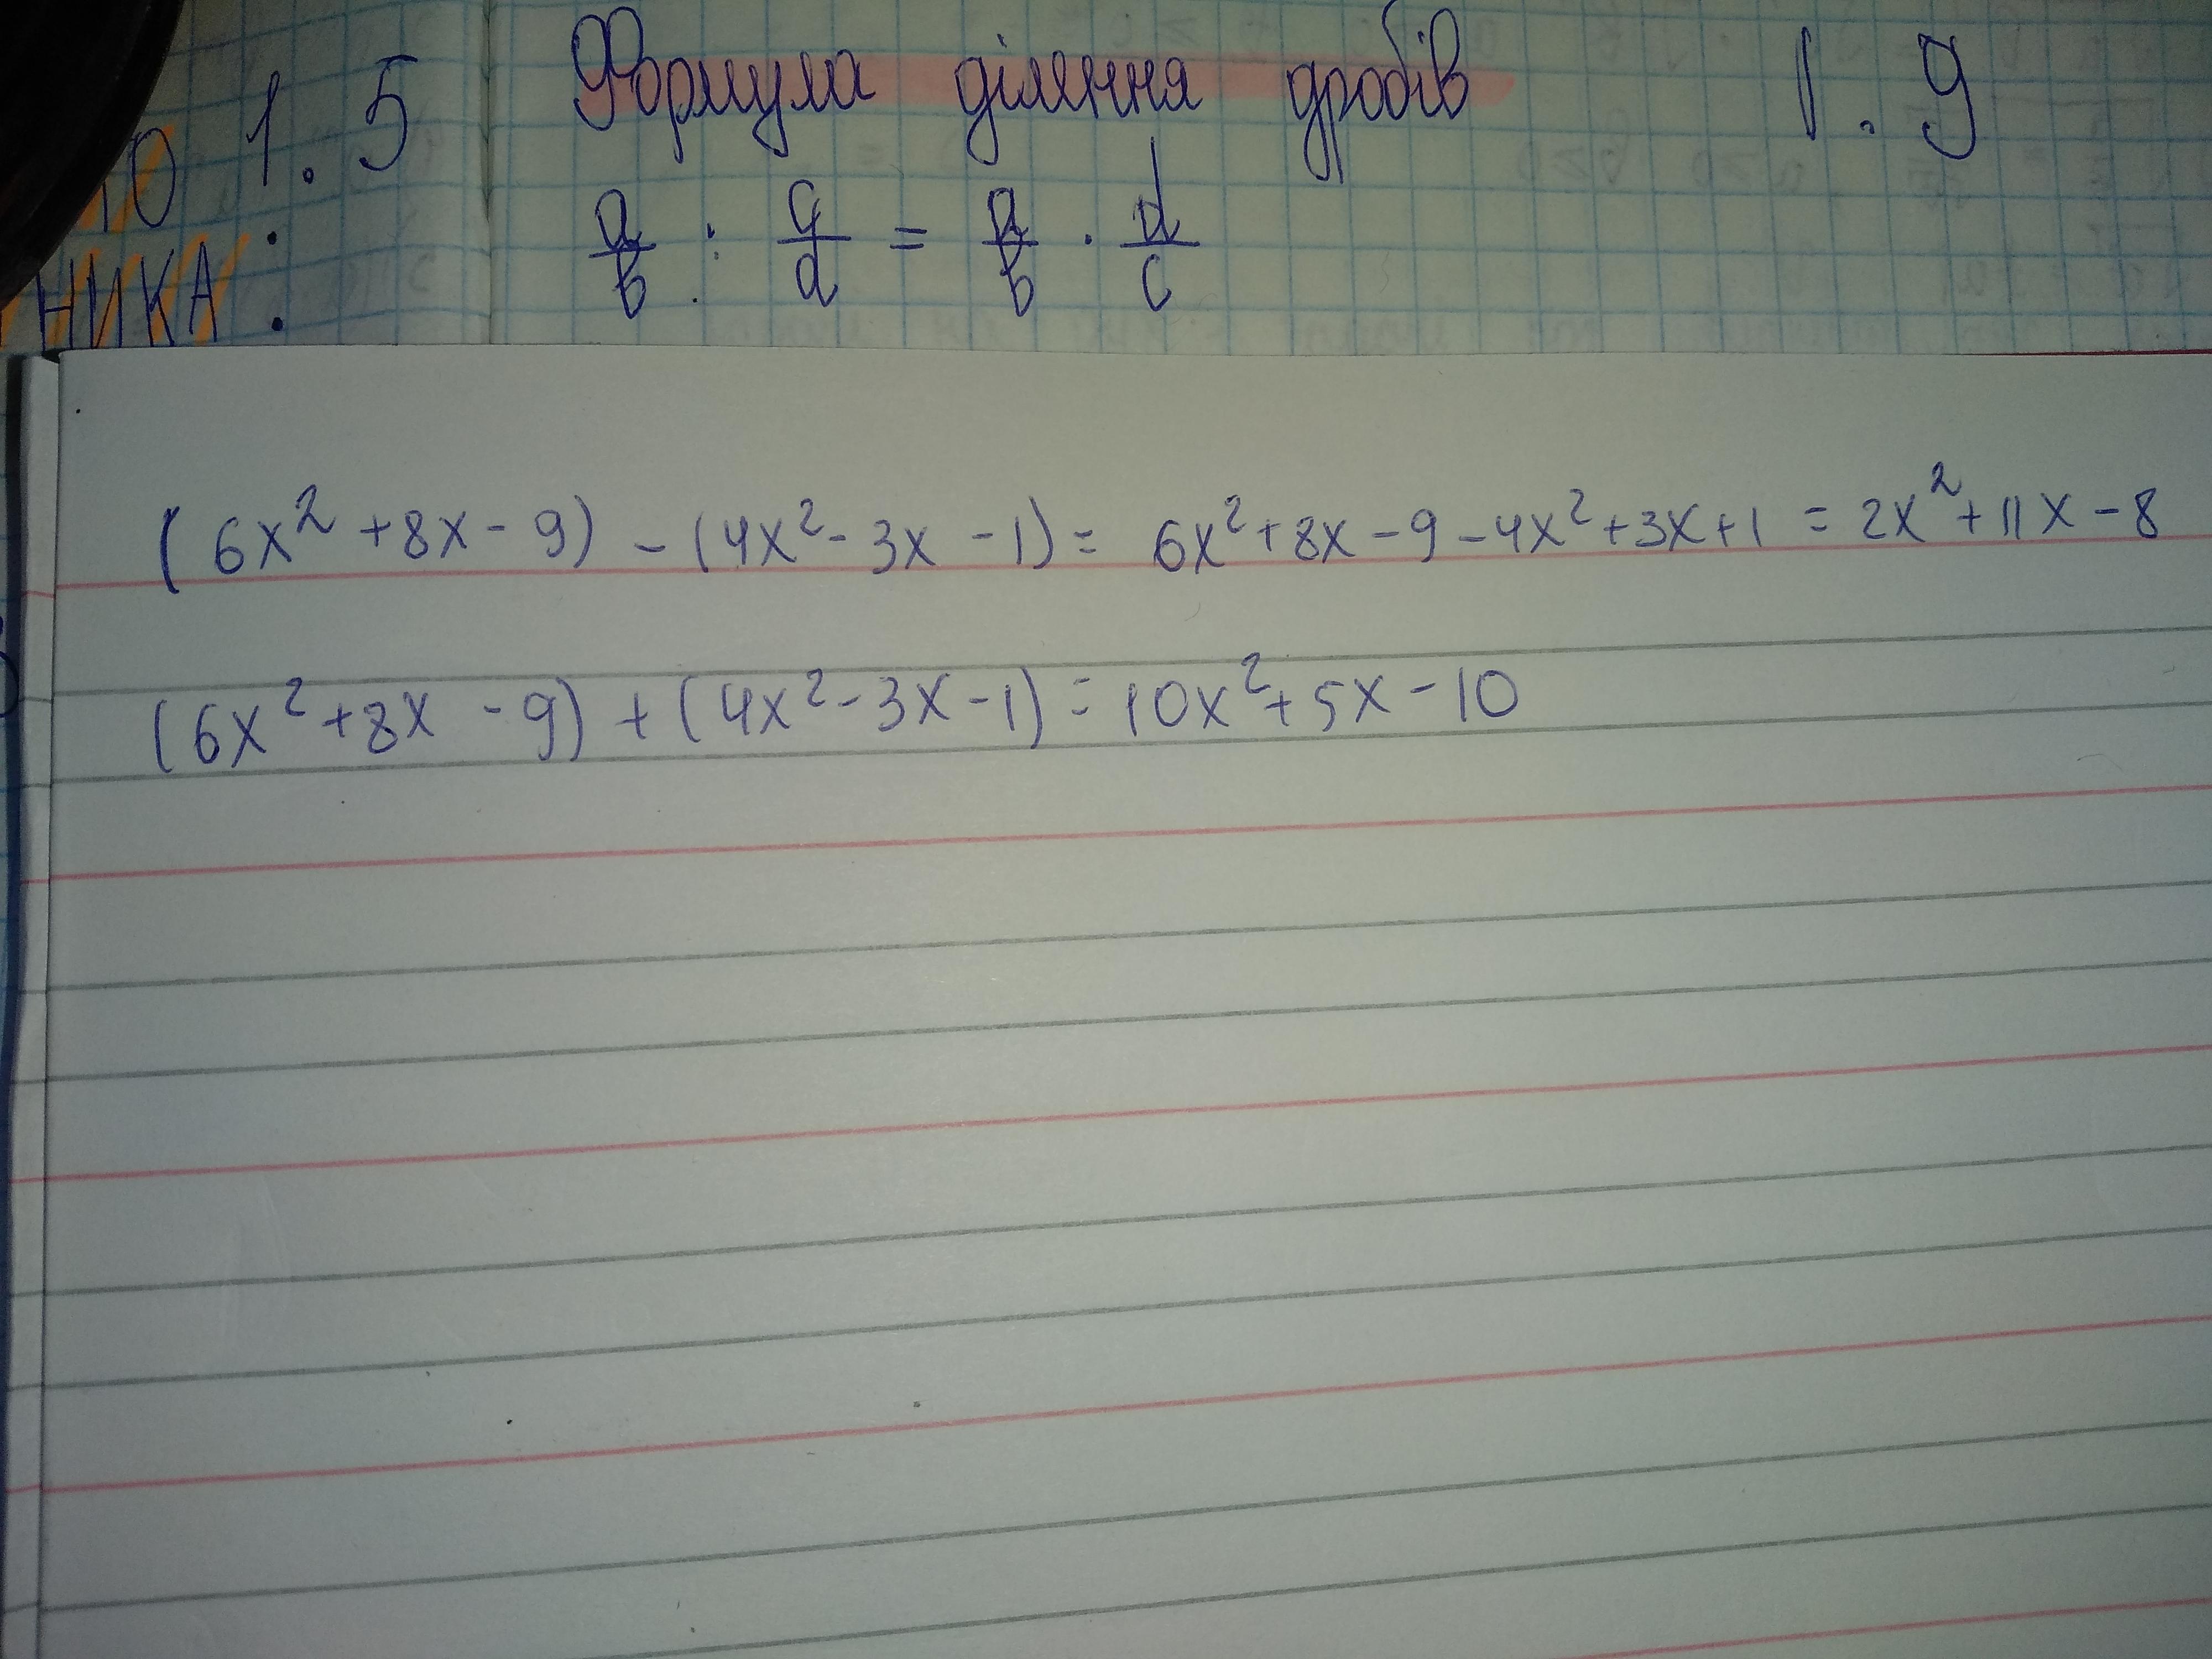 1.5 Формула ділення дробів 1.9
a/b : c/d = a/b · d/c
НИКА:
(6x² + 8x - 9) - (4x² - 3x - 1) = 6x² + 8x - 9 - 4x² + 3x + 1 = 2x² + 11x - 8
(6x² + 8x - 9) + (4x² - 3x - 1) = 10x² + 5x - 10